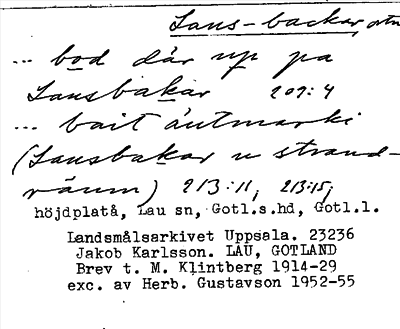 Lans-backar, ortn
... bod där up pa
Lansbakar 209:4
... bait áutmarki
(Lansbakar u strand-
räum) 213:11, 213:15,
höjdplatå, Lau sn, Gotl.s.hd, Gotl.l.
Landsmålsarkivet Uppsala. 23236
Jakob Karlsson. LAU, GOTLAND
Brev t. M. Klintberg 1914-29
exc. av Herb. Gustavson 1952-55